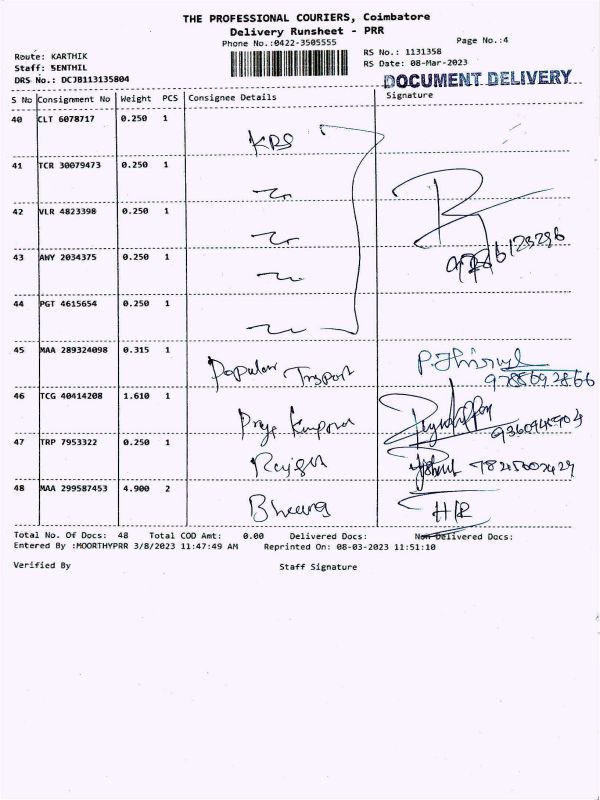 THE PROFESSIONAL COURIERS, Coimbatore
Delivery Runsheet - PRR
Phone No.:0422-3505555
Page No.:4
Route: KARTHIK
RS No.: 1131358
Staff: SENTHIL
RS Date: 08-Mar-2023
DRS No.: DCJB113135804
DOCUMENT DELIVERY
S No Consignment No Weight PCS Consignee Details Signature
40 CLT 6078717 0.250 1
KBS
41 TCR 30079473 0.250 1
42 VLR 4823398 0.250 1
43 AWY 2034375 0.250 1
44 PGT 4615654 0.250 1
45 MAA 289324098 0.315 1
Popular
46 TCG 40414208 1.610 1
47 TRP 7953322 0.250 1
48 MAA 299587453 4.900 2
H/R
Total No. Of Docs: 48 Total COD Amt: 0.00 Delivered Docs: Non Delivered Docs:
Entered By :MOORTHYPRR 3/8/2023 11:47:49 AM Reprinted On: 08-03-2023 11:51:10
Verified By Staff Signature